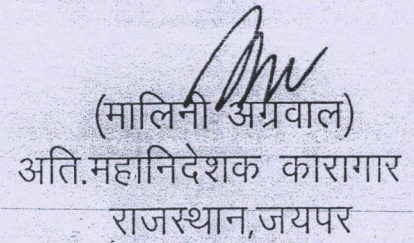 (मालिनी अग्रवाल)
अति.महानिदेशक कारागार
राजस्थान,जयपर